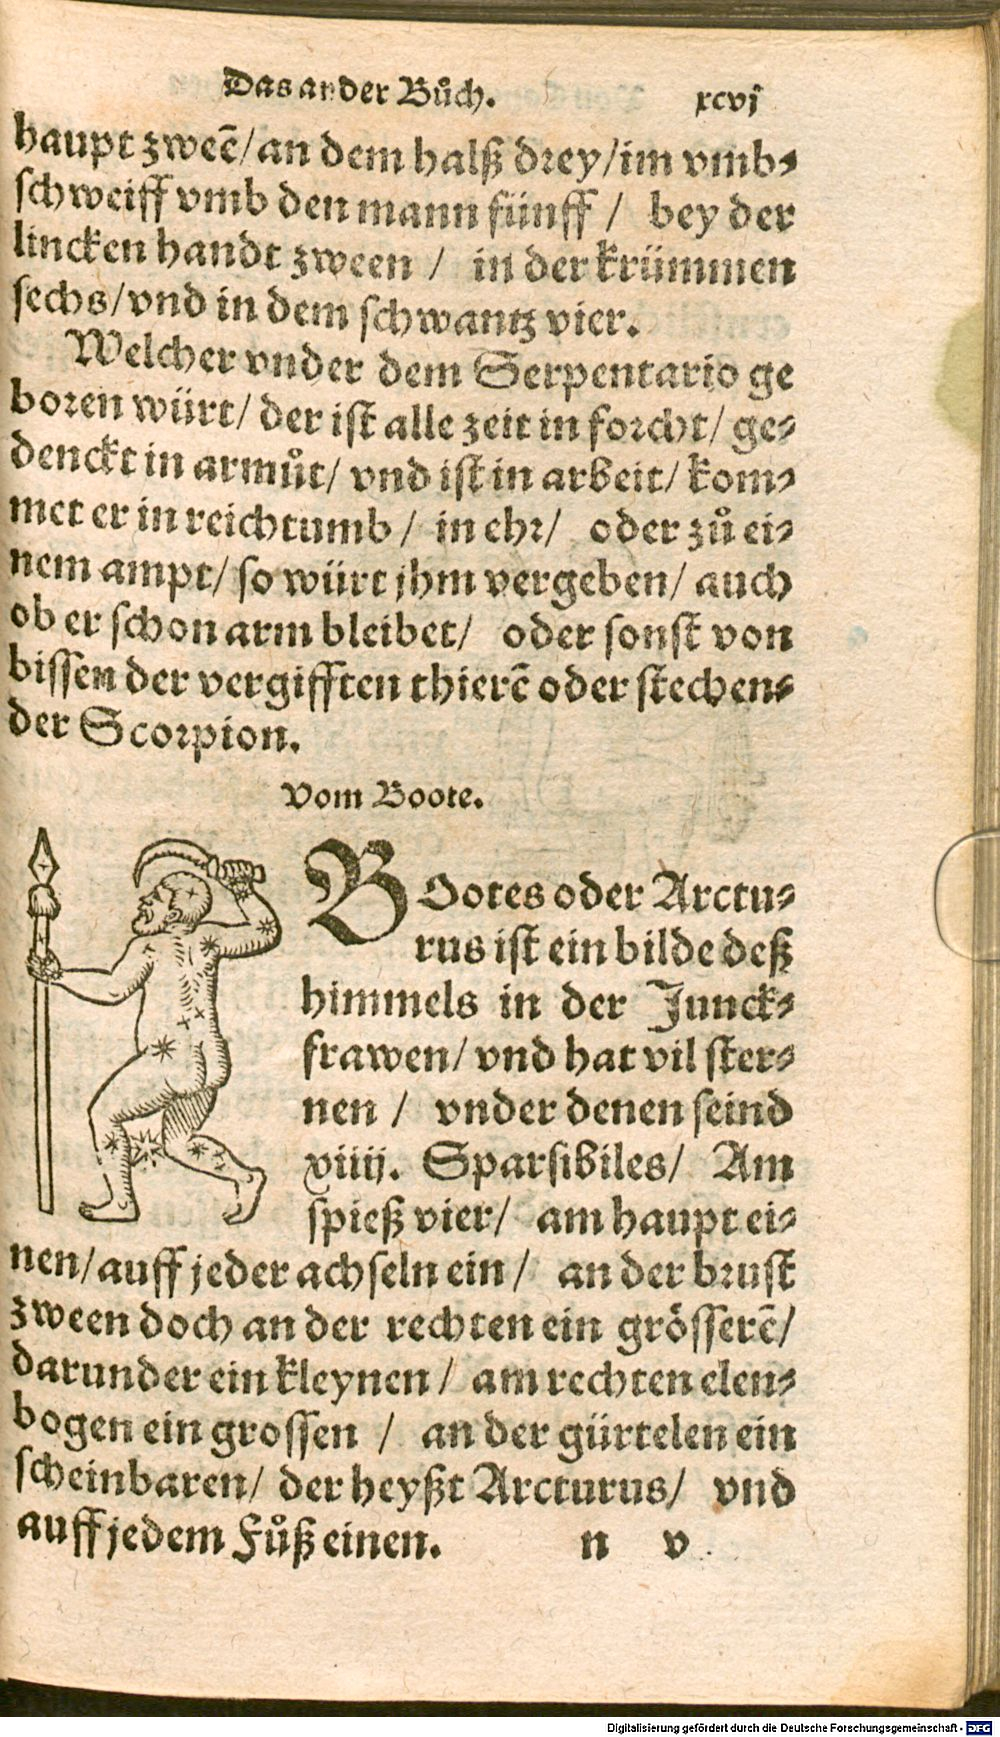 Das ander Bůch. xcvj
haupt zweē/an dem halß drey/im vmb⸗
schweiff vmb den mann fünff / bey der
lincken handt zween / in der krümmen
sechs/vnd in dem schwantz vier.
Welcher vnder dem Serpentario ge
boren würt/ der ist alle zeit in forcht/ ge⸗
denckt in armůt/ vnd ist in arbeit/ kom⸗
met er in reichtumb / in ehr/ oder zů ei⸗
nem ampt/ so würt jhm vergeben/ auch
ob er schon arm bleibet/ oder sonst von
bissen der vergifften thierē oder stechen⸗
der Scorpion.
Vom Boote.
BOotes oder Arctu⸗
rus ist ein bilde deß
himmels in der Junck⸗
frawen/ vnd hat vil ster⸗
nen / vnder denen seind
viiij. Sparsibiles/ Am
spieß vier/ am haupt ei⸗
nen/auff jeder achseln ein / an der brust
zween doch an der rechten ein grösserē/
darunder ein kleynen / am rechten elen⸗
bogen ein grossen / an der gürtelen ein
scheinbaren/ der heyßt Arcturus/ vnd
auff jedem Fůß einen. n v
Digitalisierung gefördert durch die Deutsche Forschungsgemeinschaft - DFG